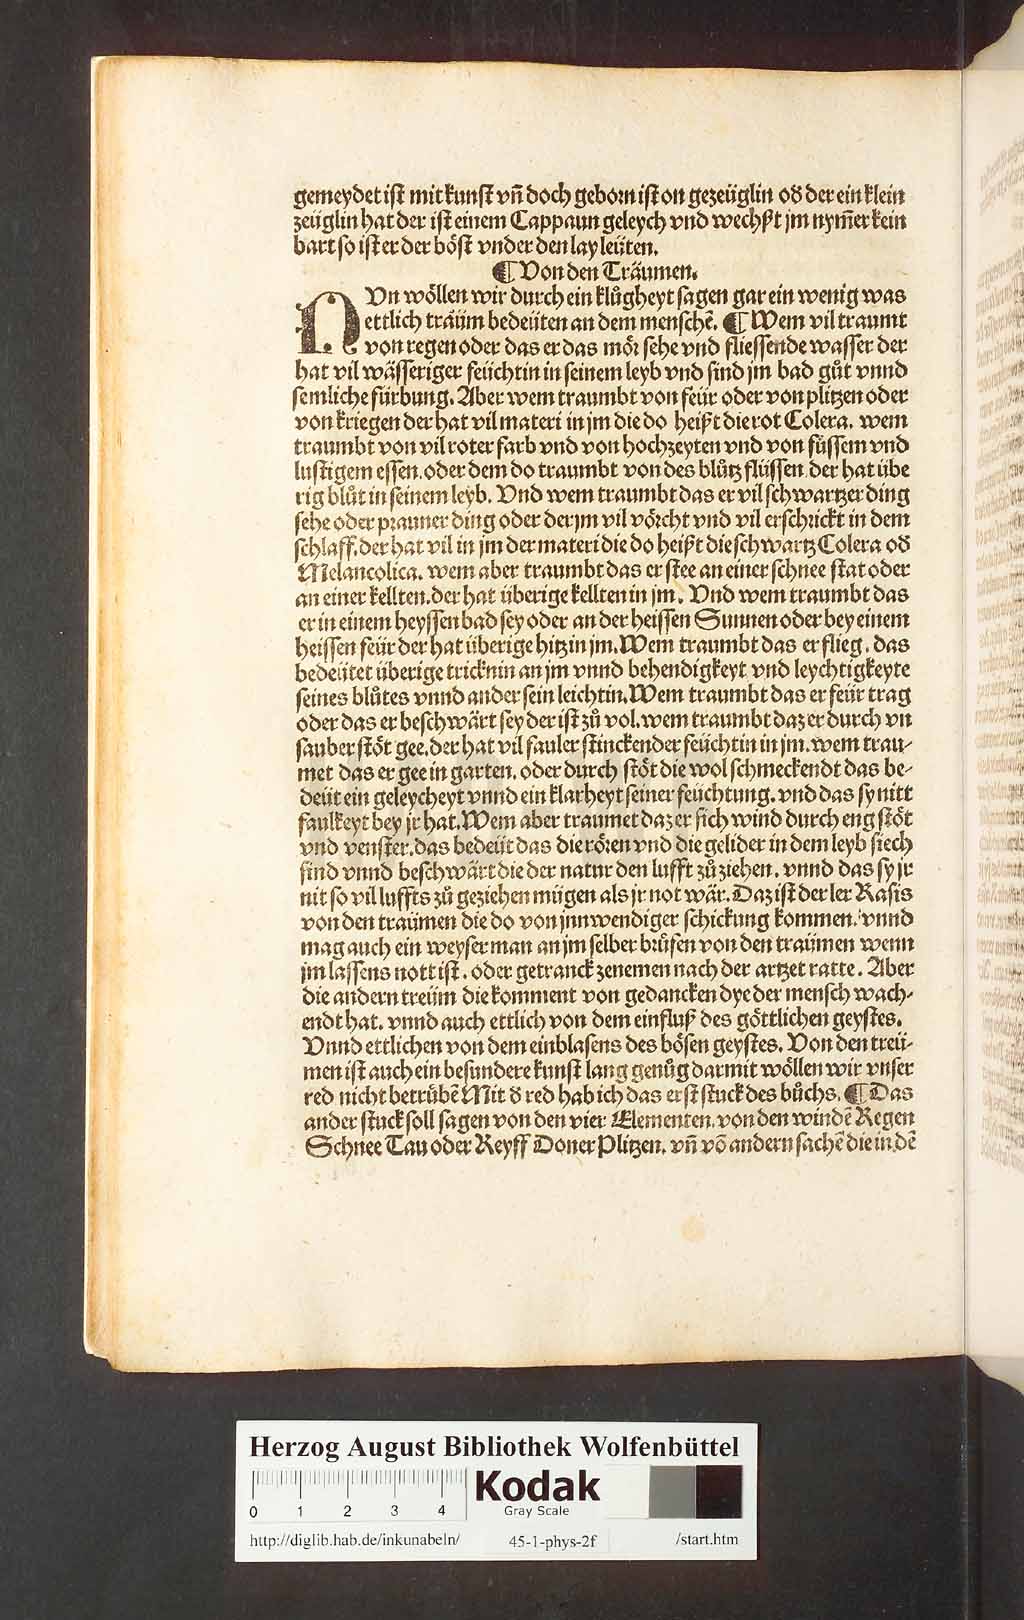 gemeydet ist mit kunst vñ doch geborn ist on gezeüglin oď der ein klein
zeüglin hat der ist einem Cappaun geleych vnd wechßt jm nym̃er kein
bart so ist er der böst vnder den lay leüten.
¶ Von den Träumen.
NVn wöllen wir durch ein klůgheyt sagen gar ein wenig was
ettlich träüm bedeüten an dem menschẽ. ¶ Wem vil traumt
von regen oder das er das mör sehe vnd fliessende wasser der
hat vil wässeriger feüchtin in seinem leyb vnd sind jm bad gůt vnnd
semliche fürbung. Aber wem traumbt von feür oder von plitzen oder
von kriegen der hat vil materi in jm die do heißt die rot Colera. wem
traumbt von vil roter farb vnd von hochzeyten vnd von süssem vnd
lustigem essen. oder dem do traumbt von des blůtz flüssen. der hat übe
rig blůt in seinem leyb. Vnd wem traumbt das er vil schwartzer ding
sehe oder prauner ding oder der jm vil vörcht vnd vil erschrickt in dem
schlaff. der hat vil in jm der materi die do heißt die schwartz Colera oď
Melancolica. wem aber traumbt das er stee an einer schnee stat oder
an einer kellten. der hat überige kellten in jm. Vnd wem traumbt das
er in einem heyssen bad sey oder an der heissen Sunnen oder bey einem
heissen feür der hat überige hitz in jm. Wem traumbt das er flieg. das
bedeütet überige tricknin an jm vnnd behendigkeyt vnd leychtigkeyte
seines blůtes vnnd ander sein leichtin. Wem traumbt das er feür trag
oder das er beschwärt sey der ist zů vol. wem traumbt daz er durch vn
sauber stöt gee. der hat vil fauler stinckender feüchtin in jm. wem trau⸗
met das er gee in garten. oder durch stöt die wol schmeckendt das be⸗
deüt ein geleycheyt vnnd ein klarheyt seiner feüchtung. vnd das sy nitt
faulkeyt bey jr hat. Wem aber traumet daz er sich wind durch eng stöt
vnd venster. das bedeüt das die rören vnd die gelider in dem leyb siech
sind vnnd beschwärt die der natur den lufft zů ziehen. vnnd das sy jr
nit so vil luffts zů geziehen mügen als jr not wär. Daz ist der ler Rasis
von den traümen die do von jnnwendiger schickung kommen. vnnd
mag auch ein weyser man an jm selber brůfen von den traümen wenn
jm lassens nott ist. oder getranck zenemen nach der artzet ratte. Aber
die andern treüm die komment von gedancken dye der mensch wach⸗
endt hat. vnnd auch ettlich von dem einfluß des göttlichen geystes.
Vnnd ettlichen von dem einblasens des bösen geystes. Von den treü⸗
men ist auch ein besundere kunst lang genůg darmit wöllen wir vnser
red nicht betrübẽ Mit ď red hab ich das erst stuck des bůchs. ¶ Das
ander stuck soll sagen von den vier Elementen. von den windẽ Regen
Schnee Tau oder Reyff Doner Plitzen. vñ võ andern sachẽ die in dẽ
Herzog August Bibliothek Wolfenbüttel
0 1 2 3 4
Kodak
Gray Scale
http://diglib.hab.de/inkunabeln/ 45-1-phys-2f /start.htm